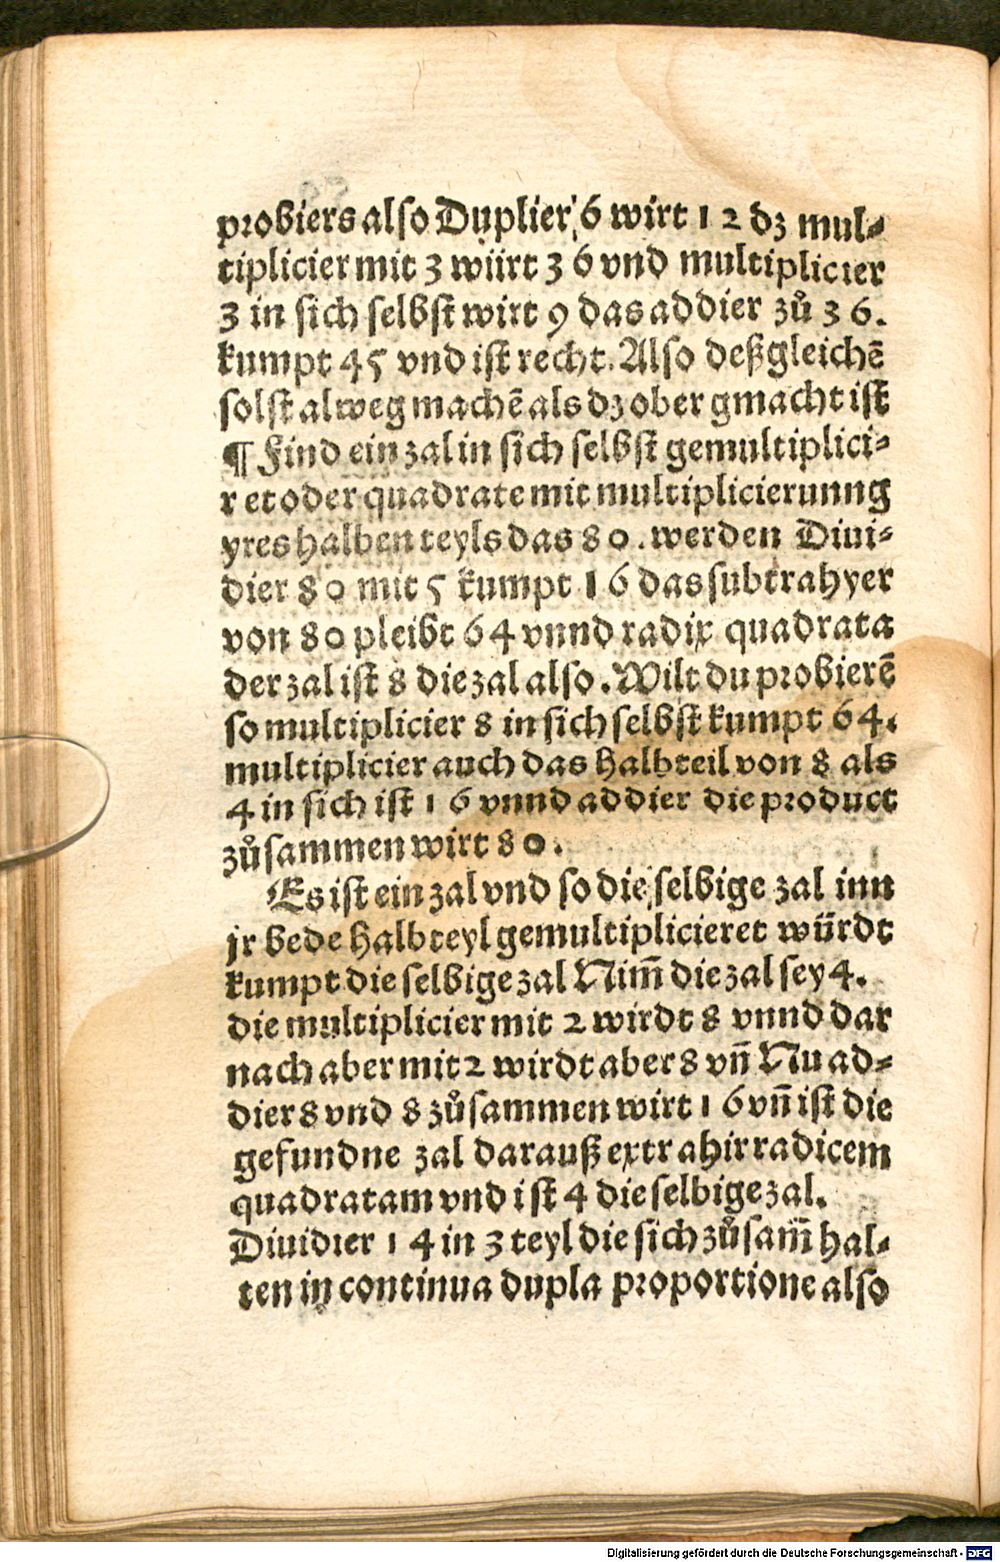 probiers also Duplier 6 wirt 1 2 dz mul⸗
tiplicier mit 3 wiirt 3 6 vnd multiplicier
3 in sich selbst wirt 9 das addier zů 3 6.
kumpt 45 vnd ist recht. Also deßgleichē
solst alweg machē als dz ober gmacht ist
¶ Find ein zal in sich selbst gemultiplici⸗
r et oder quadrate mit multiplicierunng
yres halben teyls das 8 0. werden Diui⸗
dier 8 0 mit 5 kumpt 1 6 das subtrahyer
von 80 pleibt 6 4 vnnd radix quadrata
der zal ist 8 die zal also. Wilt du probierē
so multiplicier 8 in sich selbst kumpt 64.
multiplicier auch das halbteil von 8 als
4 in sich ist 1 6 vnnd addier die product
zůsammen wirt 8 0.
Es ist ein zal vnd so die selbige zal inn
jr bede halbteyl gemultiplicieret würdt
kumpt die selbige zal Nim̄ die zal sey 4.
die multiplicier mit 2 wirdt 8 vnnd dar
nach aber mit 2 wirdt aber 8 vn̄ Nu ad⸗
dier 8 vnd 8 zůsammen wirt 1 6 vn̄ ist die
gefundne zal darauß extrahir radicem
quadratam vnd ist 4 die selbige zal.
Diuidier 1 4 in 3 teyl die sich zůsam̄ hal⸗
ten in continua dupla proportione also
Digitalisierung gefördert durch die Deutsche Forschungsgemeinschaft - DFG